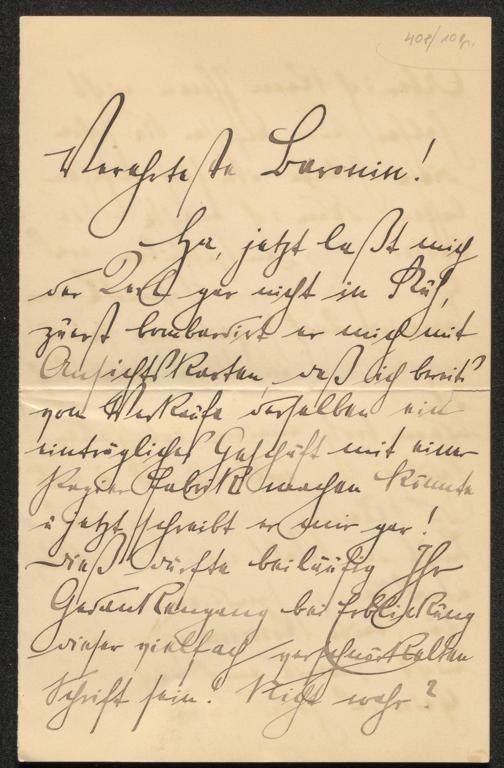 408/10 N.
Verehrteste Baronin!
Ja, jetzt laßt mich
der Kerl gar nicht in Ruh,
zuerst bombardirt er mich mit
Ansichtskarten, daß ich bereits
vom Verkaufe derselben ein
einträgliches Geschäft mit einer
Papier Fabrik machen könnte
u jetzt schreibt er mir gar!
Dieß dürfte beiläufig Ihr
Gedankengang bei Erblickung
dieser vielfach verschnörkelten
Schrift sein. Nicht wahr?